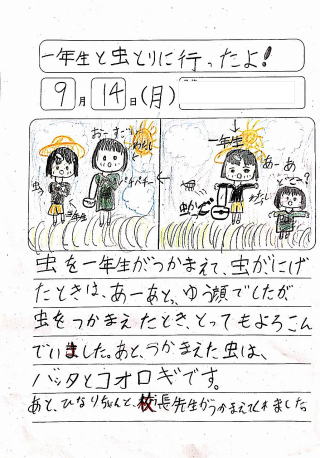 一年生と虫とりに行ったよ!
9月14日(月)
一年生
おーすごい
わたし
パチパチ
虫
一年生
あーあ
どこ?
わたし
虫かご
虫を一年生がつかまえて、虫がにげ
たときは、あーあと、ゆう顔でしたが
虫をつかまえたとき、とってもよろこん
でいました。あと、つかまえた虫は、
バッタとコオロギです。
あと、ひなりちゃんと、校長先生がつかまえてくれました。